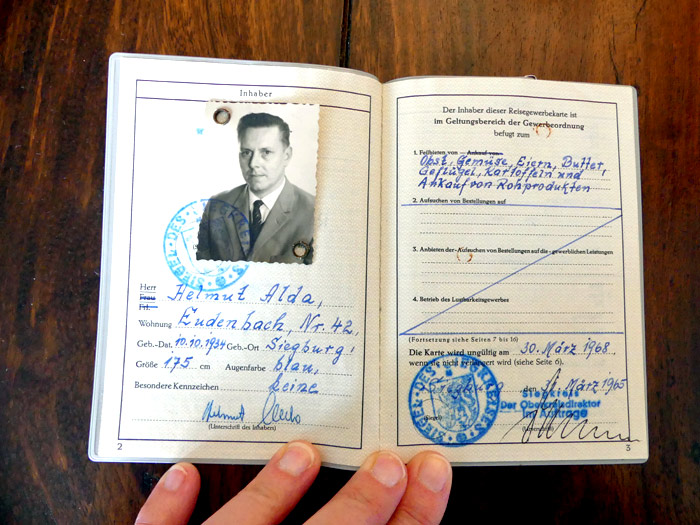 Inhaber
Herr
Frau
Frl.
Helmut Alda,
Wohnung Eudenbach, Nr. 42,
Geb.-Dat. 10.10.1934 Geb.-Ort Siegburg,
Größe 175 cm Augenfarbe blau,
Besondere Kennzeichen keine
Helmut Alda
(Unterschrift des Inhabers)
2
SIEGEL DES
Der Inhaber dieser Reisegewerbekarte ist
im Geltungsbereich der Gewerbeordnung
befugt zum
1. Feilbieten von Ankauf von
Obst, Gemüse, Eiern, Butter,
Geflügel, Kartoffeln und
Ankauf von Rohprodukten
2. Aufsuchen von Bestellungen auf
3. Anbieten der Aufsuchen von Bestellungen auf die gewerblichen Leistungen
4. Betrieb des Lustbarkeitsgewerbes
(Fortsetzung siehe Seiten 7 bis 16)
Die Karte wird ungültig am 30. März 1968,
wenn sie nicht verlängert wird (siehe Seite 6).
den 31. März 1965
SIEGEL DES
Siegkreis
Der Oberkreisdirektor
Im Auftrage
3